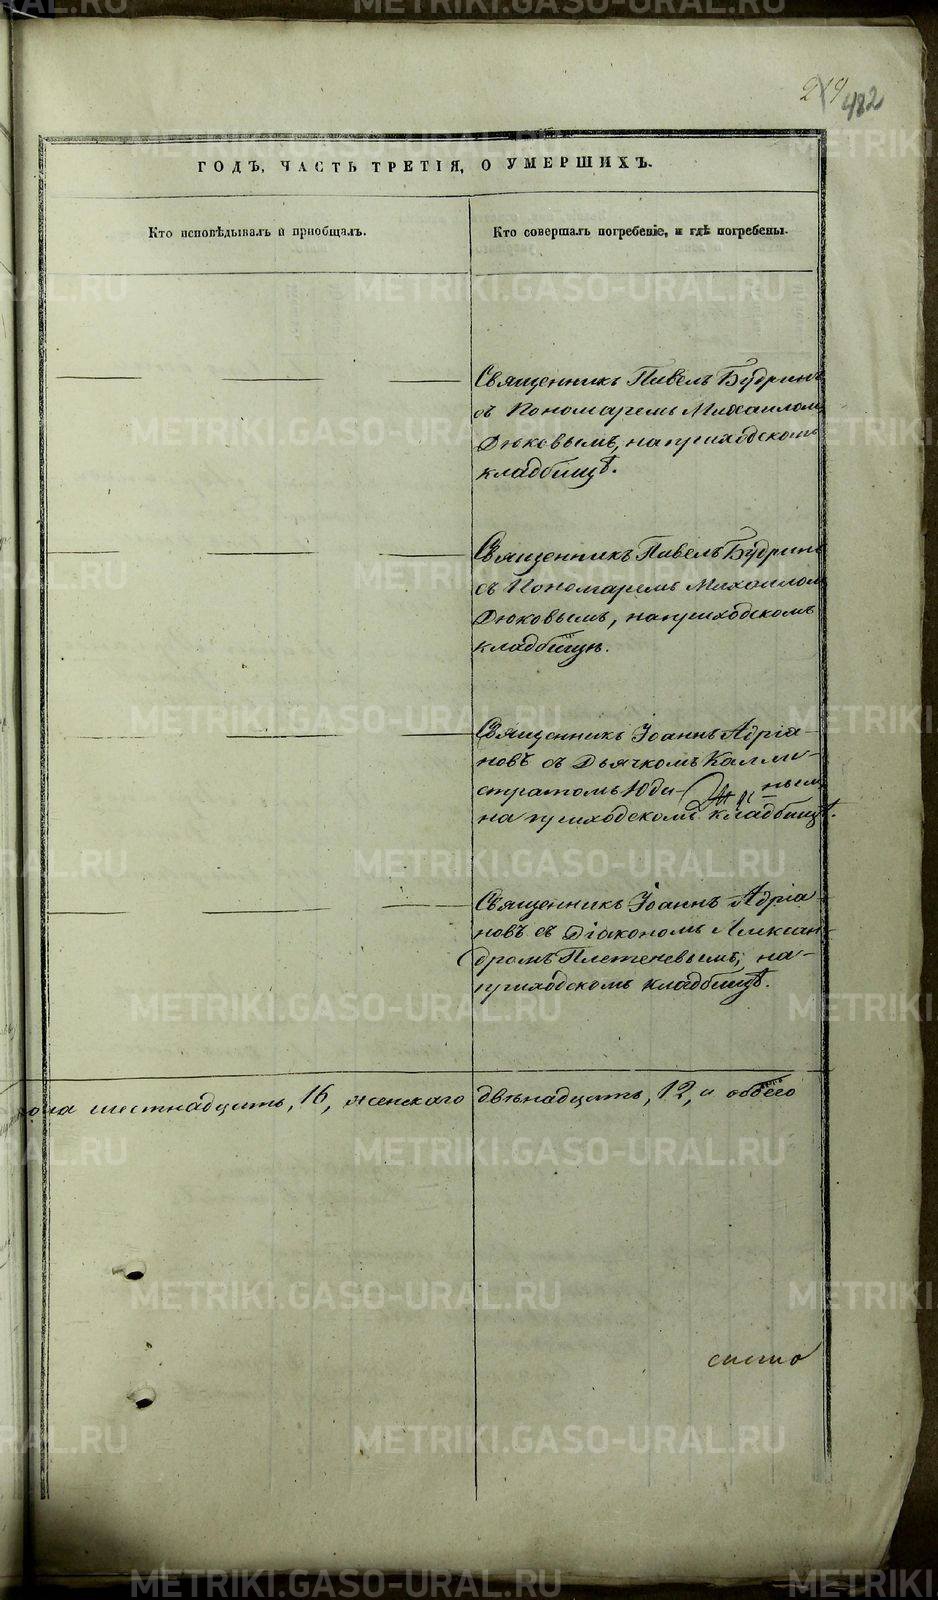 219
482
ГОДЪ, ЧАСТЬ ТРЕТІЯ, О УМЕРШИХЪ.
Кто исповѣдывалъ и пріобщалъ.
Кто совершалъ погребеніе, и гдѣ погребены.
Священникъ Павелъ Будринъ
съ Пономаремъ Михаиломъ
Дюковымъ, на приходскомъ
кладбищѣ.
Священникъ Павелъ Будринъ
съ Пономаремъ Михаиломъ
Дюковымъ, на приходскомъ
кладбищѣ.
Священникъ Іоаннъ Адріа-
новъ съ Дьячкомъ Калли-
стратомъ Юди- нымъ,
на приходскомъ кладбищѣ.
Священникъ Іоаннъ Адріа-
новъ съ Діакономъ Алексан-
дромъ Плетеневымъ, на-
приходскомъ кладбищѣ.
пола шестнадцать, 16, женскаго двѣнадцать, 12, и обоего
METRIKI.GASO-URAL.RU